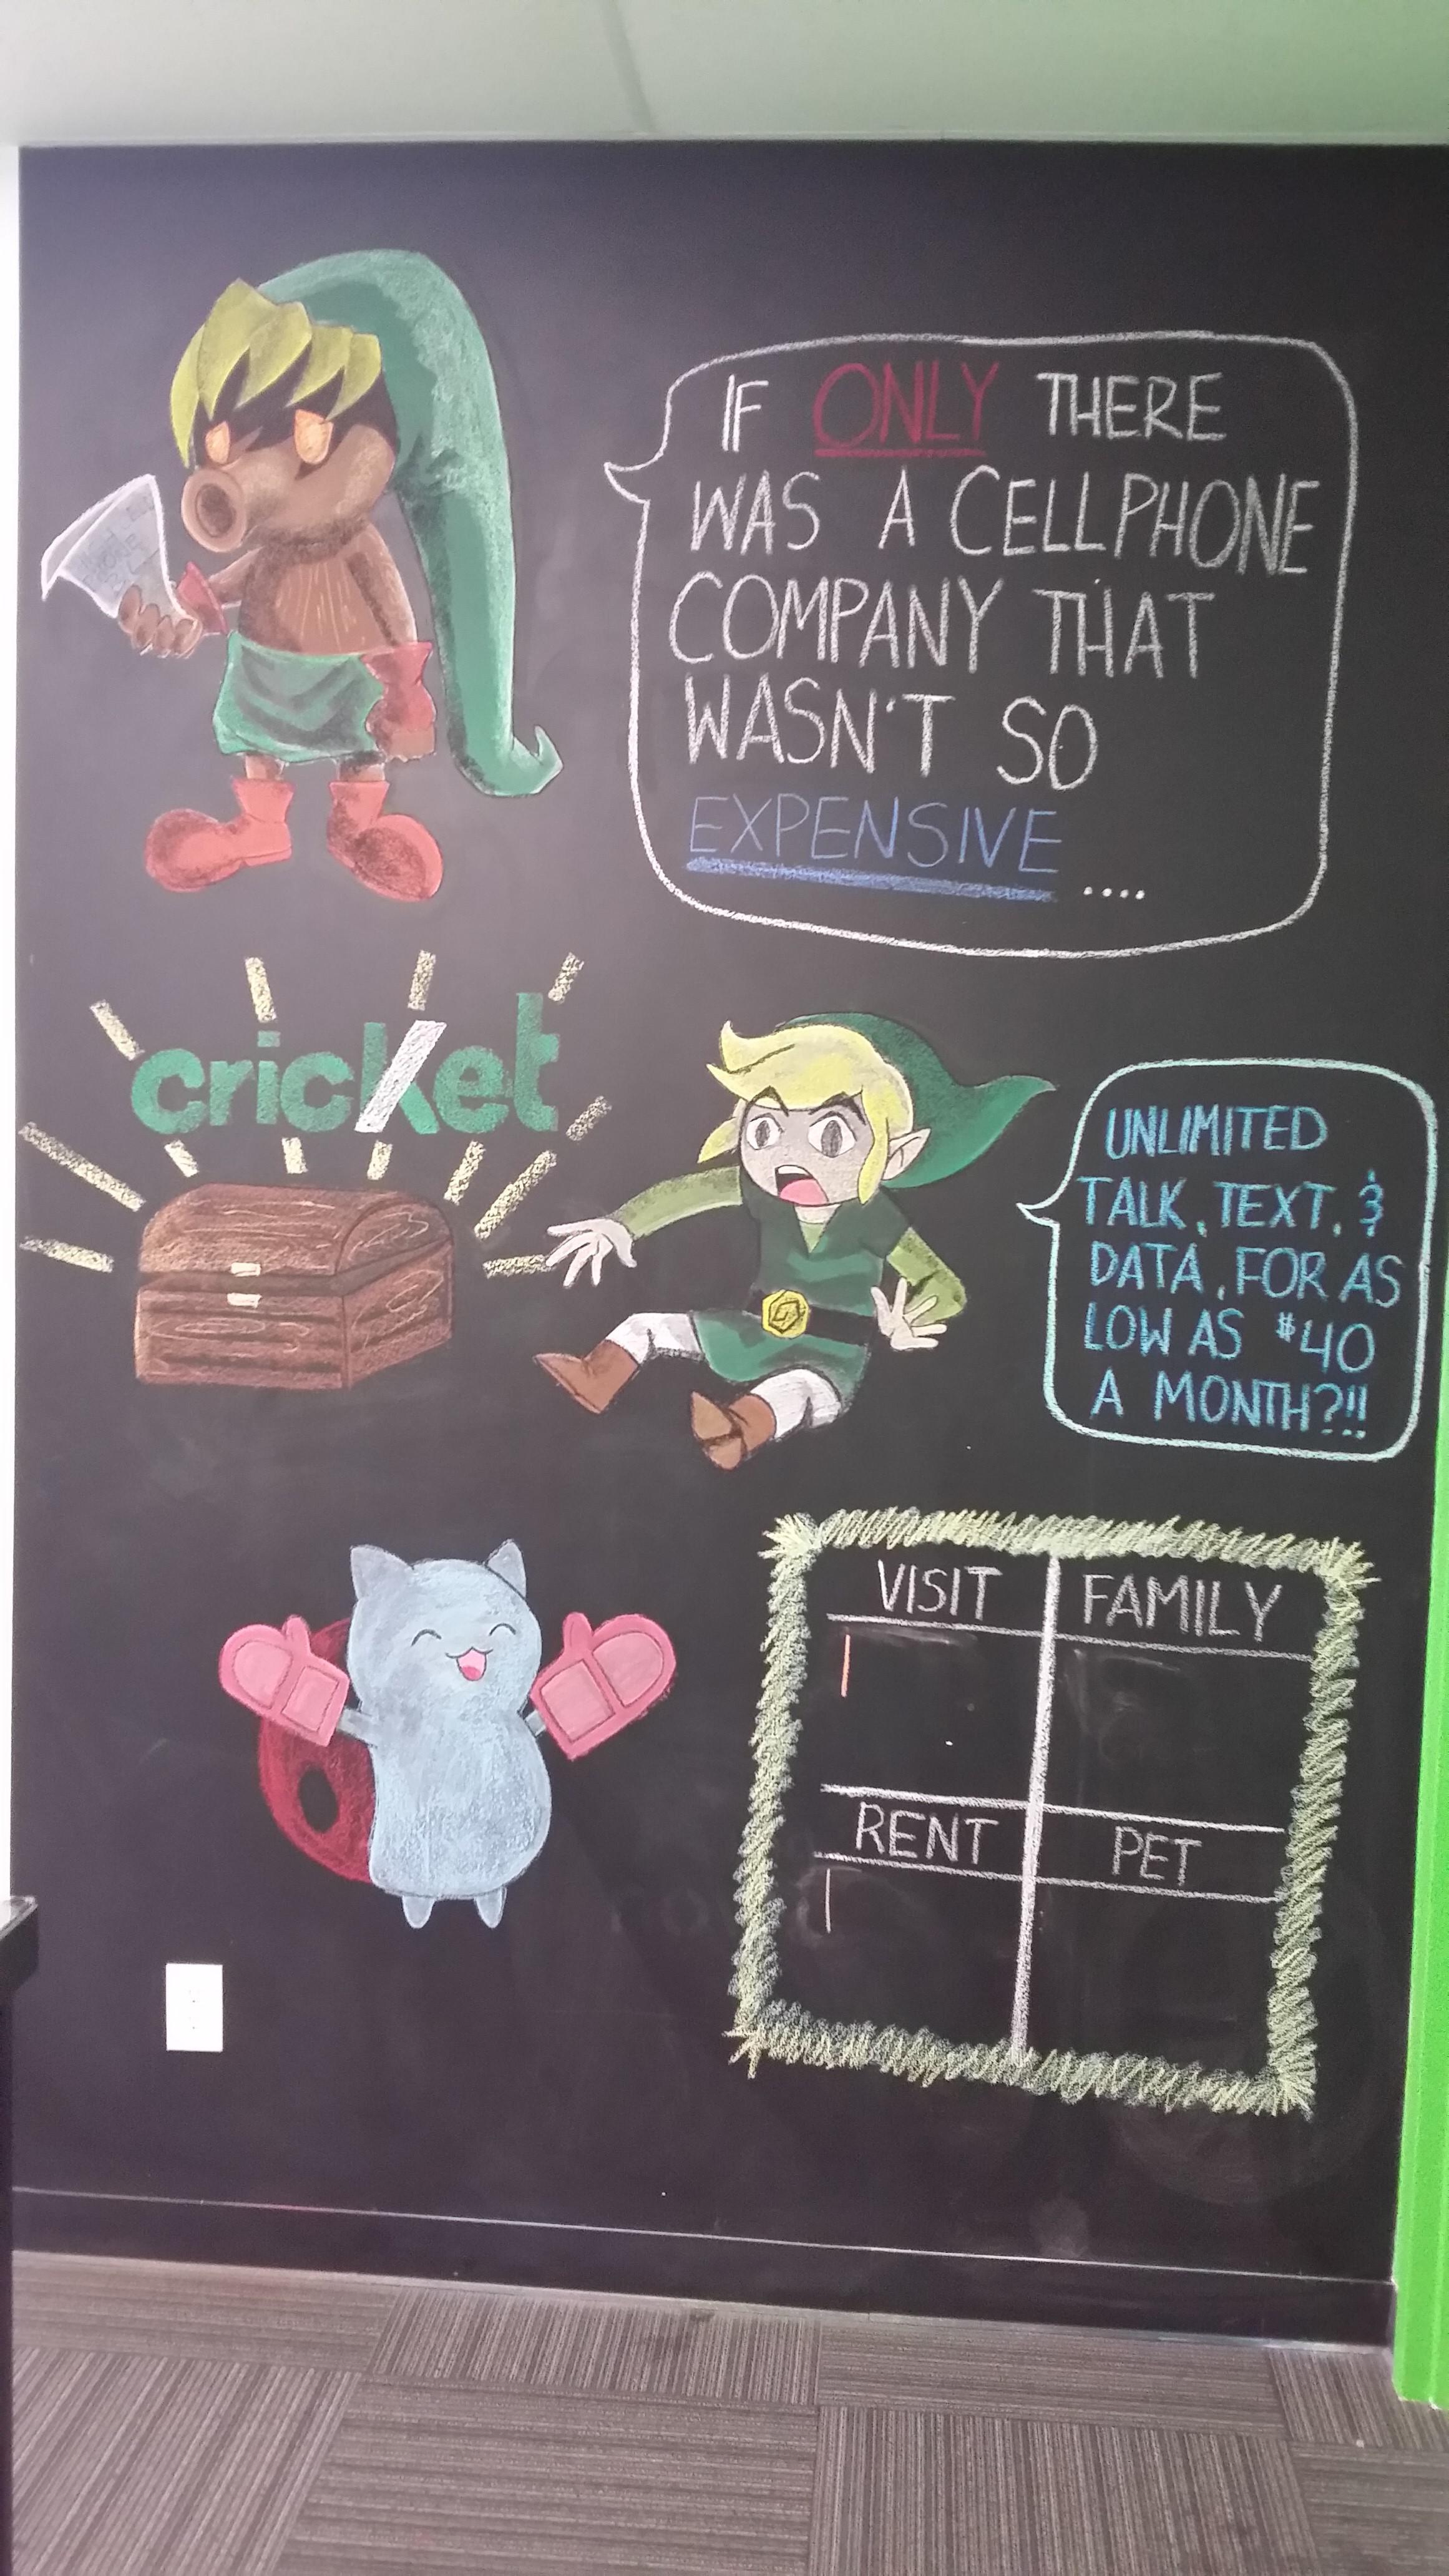 IF ONLY THERE
WAS A CELLPHONE
COMPANY THAT
WASN'T SO
EXPENSIVE ....
cricket
UNLIMITED
TALK, TEXT, &
DATA, FOR AS
LOW AS $40
A MONTH?!!
VISIT
FAMILY
RENT
PET